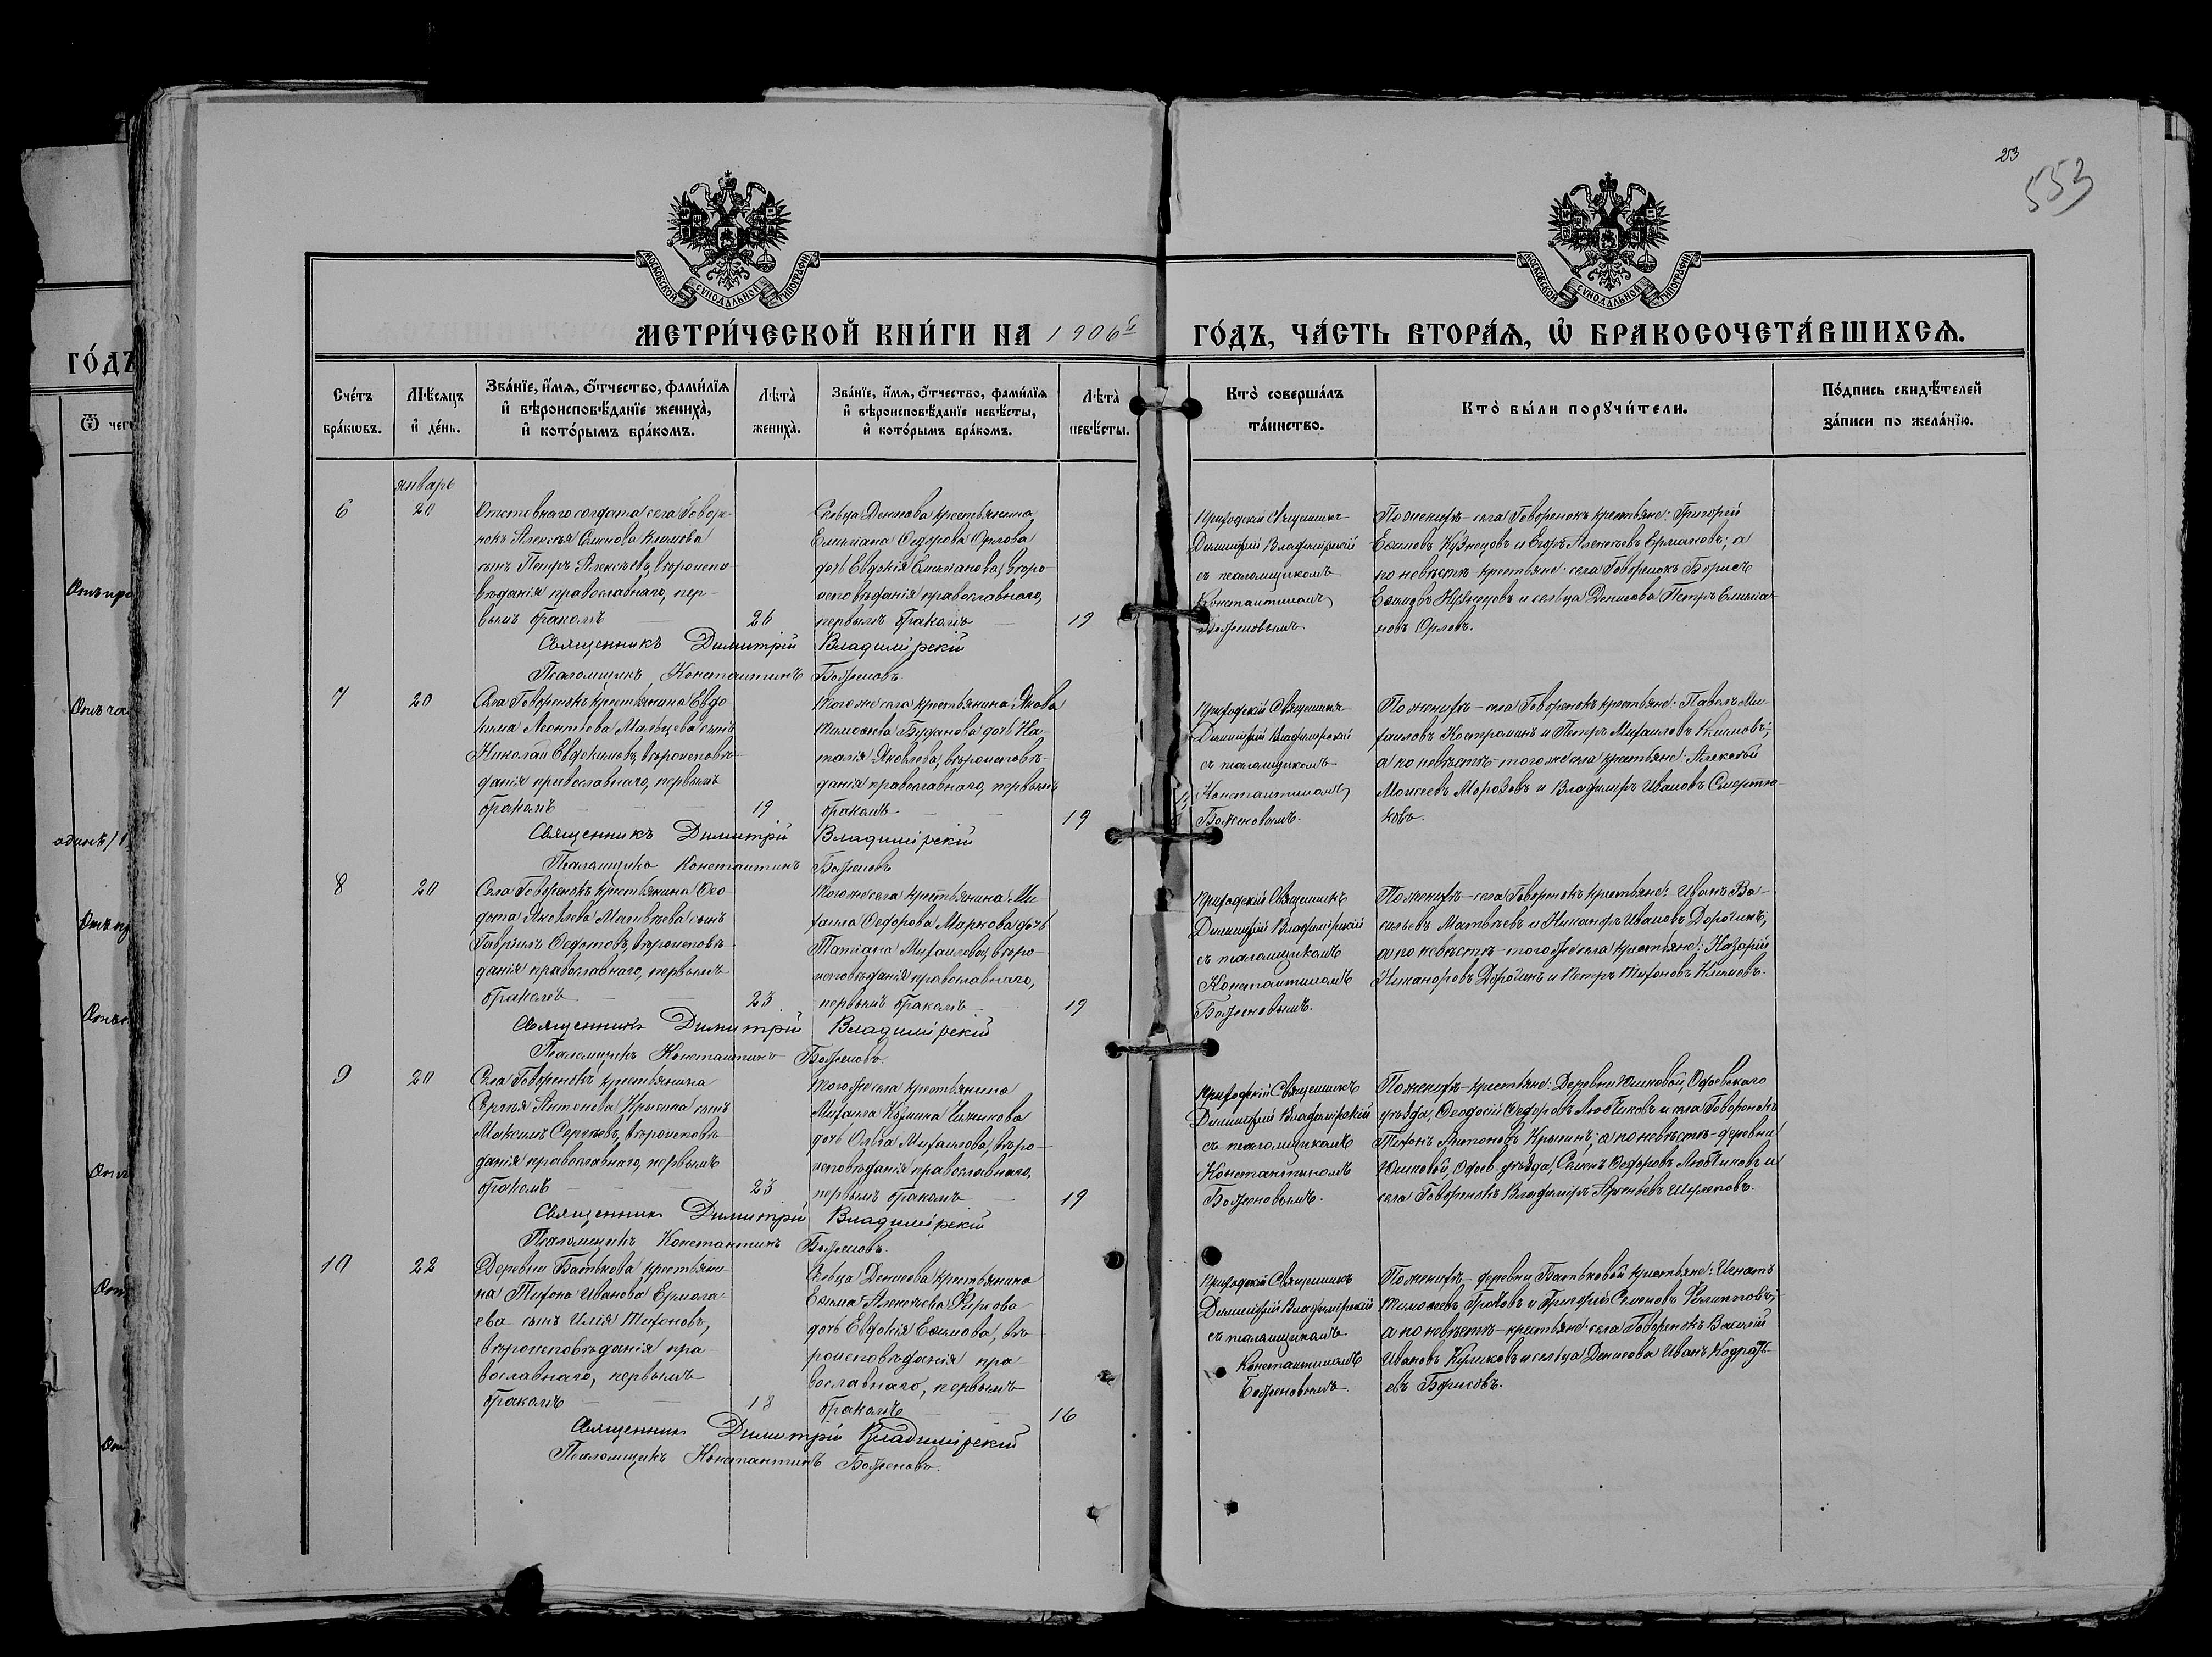 23
553
МОСКОВСКОЙ СѴНОДАЛЬНОЙ ТИПОГРАФІИ
МОСКОВСКОЙ СѴНОДАЛЬНОЙ ТИПОГРАФІИ
МЕТРИ́ЧЕСКОЙ КНИ́ГИ НА 1906й ГО́ДЪ, ЧА́СТЬ ВТОРА́Я, Ѡ БРАКОСОЧЕТА́ВШИХСЯ.
ГО́ДЪ
Сче́тъ
бра́кѡвъ.
Мѣ́сяцъ
и҆ де́нь.
Зва́нїе, и҆́мя, ѻ҆́тчество, фами́лїя
и҆ вѣроисповѣ́данїе жениха̀,
и҆ кото́рымъ бра́комъ.
Лѣ́та̀
жениха̀.
Зва́нїе, и҆́мя, ѻ҆́тчество, фами́лїя
и҆ вѣроисповѣ́данїе невѣ́сты,
и҆ кото́рымъ бра́комъ.
Лѣ́та̀
невѣ́сты.
Кто̀ соверша́лъ
та́инство.
Кто̀ бы́ли порꙋчи́тели.
По́дпись свидѣ́телей
за́писи по жела́нїю.
январь
6
20
Отставнаго солдата села Говоре-
нокъ Алексѣя Семенова Климова
сынъ Петръ Алексѣевъ, вѣроиспо-
вѣданія православнаго, пер-
вымъ бракомъ
26
Сельца Денисова крестьянина
Емельяна Ѳедорова Орлова
дочь Евдокія Емельянова, вѣро-
исповѣданія православнаго,
первымъ бракомъ
19
Приходскій Священникъ
Димитрій Владимірскій
съ псаломщикомъ
Константиномъ
Боженовымъ.
По женихѣ – села Говоренокъ крестьяне: Григорій
Ефимовъ Кузнецовъ и Егоръ Алексѣевъ Ермаковъ; а
по невѣстѣ – крестьяне: села Говоренокъ Борисъ
Ефимовъ Кузнецовъ и сельца Денисова Петръ Емелья-
новъ Орловъ.
Священникъ Димитрій Владимірскій
Псаломщикъ Константинъ Боженовъ.
7
20
Села Говоренокъ крестьянина Евдо-
кима Леонтьева Мальцева сынъ
Николай Евдокимовъ, вѣроисповѣ-
данія православнаго, первымъ
бракомъ
19
Того же села крестьянина Якова
Тимофеева Буданова дочь На-
талія Яковлева, вѣроисповѣ-
данія православнаго, первымъ
бракомъ
19
Приходскій Священникъ
Димитрій Владимірскій
съ псаломщикомъ
Константиномъ
Боженовымъ.
По женихѣ – села Говоренокъ крестьяне: Павелъ Ми-
хаиловъ Костроминъ и Петръ Михаиловъ Климовъ;
а по невѣстѣ – того же села крестьяне: Алексѣй
Моисеевъ Морозовъ и Владиміръ Ивановъ
ковъ.
Священникъ Димитрій Владимірскій
Псаломщикъ Константинъ Боженовъ
8
20
Села Говоренокъ крестьянина Ѳео-
дота Яковлева Матвѣева сынъ
Гавріилъ Ѳедотовъ, вѣроисповѣ-
данія православнаго, первымъ
бракомъ
23
Того же села крестьянина Ми-
хаила Ѳедорова Маркова дочь
Татіана Михаилова, вѣро-
исповѣданія православнаго,
первымъ бракомъ
19
Приходскій Священникъ
Димитрій Владимірскій
съ псаломщикомъ
Константиномъ
Боженовымъ.
По женихѣ – села Говоренокъ крестьяне: Иванъ Ва-
сильевъ Матвѣевъ и Никандръ Ивановъ Дорогинъ;
а по невѣстѣ – того же села крестьяне: Назарій
Никаноровъ Дорогинъ и Петръ Тихоновъ Климовъ.
Священникъ Димитрій Владимірскій
Псаломщикъ Константинъ Боженовъ.
9
20
Села Говоренокъ крестьянина
Сергѣя Антонова Крысина сынъ
Максимъ Сергѣевъ, вѣроисповѣ-
данія православнаго, первымъ
бракомъ
23
Того же села крестьянина
Михаила Козмина Чижикова
дочь Ольга Михаилова, вѣро-
исповѣданія православнаго,
первымъ бракомъ
19
Приходскій Священникъ
Димитрій Владимірскій
съ псаломщикомъ
Константиномъ
Боженовымъ.
По женихѣ – крестьяне: Деревни Юшковой, Одоевскаго
уѣзда, Ѳеодосій Ѳедоровъ Любиковъ и села Говоренокъ
Тихонъ Антоновъ Крысинъ; а по невѣстѣ – деревни
Юшковой, Одоев. уѣзда, Семенъ Ѳедоровъ Любиковъ и
села Говоренокъ Владиміръ Арсеньевъ
Священникъ Димитрій Владимірскій
Псаломщикъ Константинъ Боженовъ.
10
22
Деревни Батькова крестьяни-
на Тихона Иванова Ермола-
ева сынъ Илія Тихоновъ,
вѣроисповѣданія пра-
вославнаго, первымъ
бракомъ
18
Сельца Денисова крестьянина
Ефима Алексѣева Фирсова
дочь Евдокія Ефимова, вѣ-
роисповѣданія пра-
вославнаго, первымъ
бракомъ
16
Приходскій Священникъ
Димитрій Владимірскій
съ псаломщикомъ
Константиномъ
Боженовымъ.
По женихѣ – деревни Батьковой крестьяне: Игнатъ
Тимофеевъ Грачовъ и Григорій Семеновъ Филипповъ;
а по невѣстѣ – крестьяне: села Говоренокъ Василій
Ивановъ Куликовъ и сельца Денисова Иванъ Кодрать-
евъ Борисовъ.
Священникъ Димитрій Владимірскій
Псаломщикъ Константинъ Боженовъ.